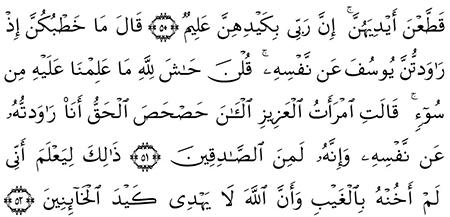 قَطَّعْنَ أَيْدِيَهُنَّ ۚ إِنَّ رَبِّى بِكَيْدِهِنَّ عَلِيمٌ ۝٥٠ قَالَ مَا خَطْبُكُنَّ إِذْ
رَٰوَدتُّنَّ يُوسُفَ عَن نَّفْسِهِۦ ۚ قُلْنَ حَٰشَ لِلَّهِ مَا عَلِمْنَا عَلَيْهِ مِن
سُوٓءٍۢ ۚ قَالَتِ ٱمْرَأَتُ ٱلْعَزِيزِ ٱلْـَٰٔنَ حَصْحَصَ ٱلْحَقُّ أَنَا۠ رَٰوَدتُّهُۥ
عَن نَّفْسِهِۦ وَإِنَّهُۥ لَمِنَ ٱلصَّٰدِقِينَ ۝٥١ ذَٰلِكَ لِيَعْلَمَ أَنِّى
لَمْ أَخُنْهُ بِٱلْغَيْبِ وَأَنَّ ٱللَّهَ لَا يَهْدِى كَيْدَ ٱلْخَآئِنِينَ ۝٥٢